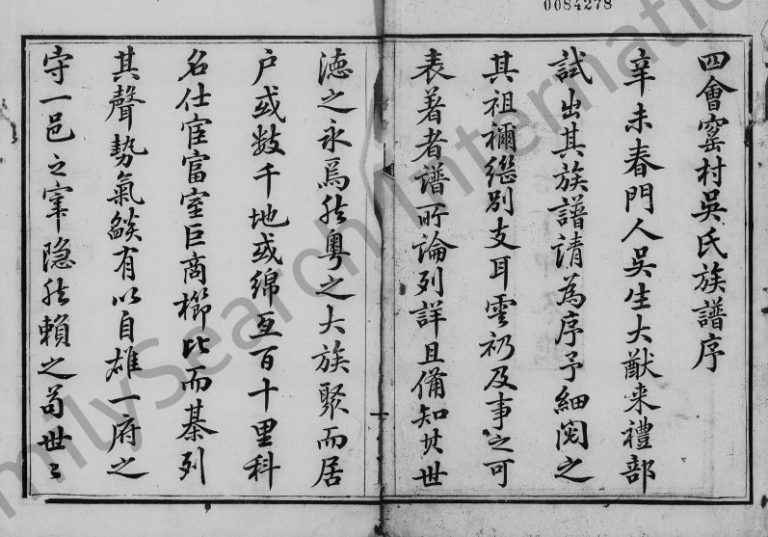 0084278
四會窰村吳氏族譜序
辛未春門人吳生大猷来禮部
試出其族譜請為序予細閲之
其祖禰繼别支耳雲礽及事之可
表著者譜所論列詳且備知其世
徳之永焉然粤之大族聚而居
户或数千地或綿亙百十里科
名仕宦富室巨商櫛比而綦列
其聲勢氣燄有以自雄一府之
守一邑之宰隐然賴之苟世〻
FamilySearch International